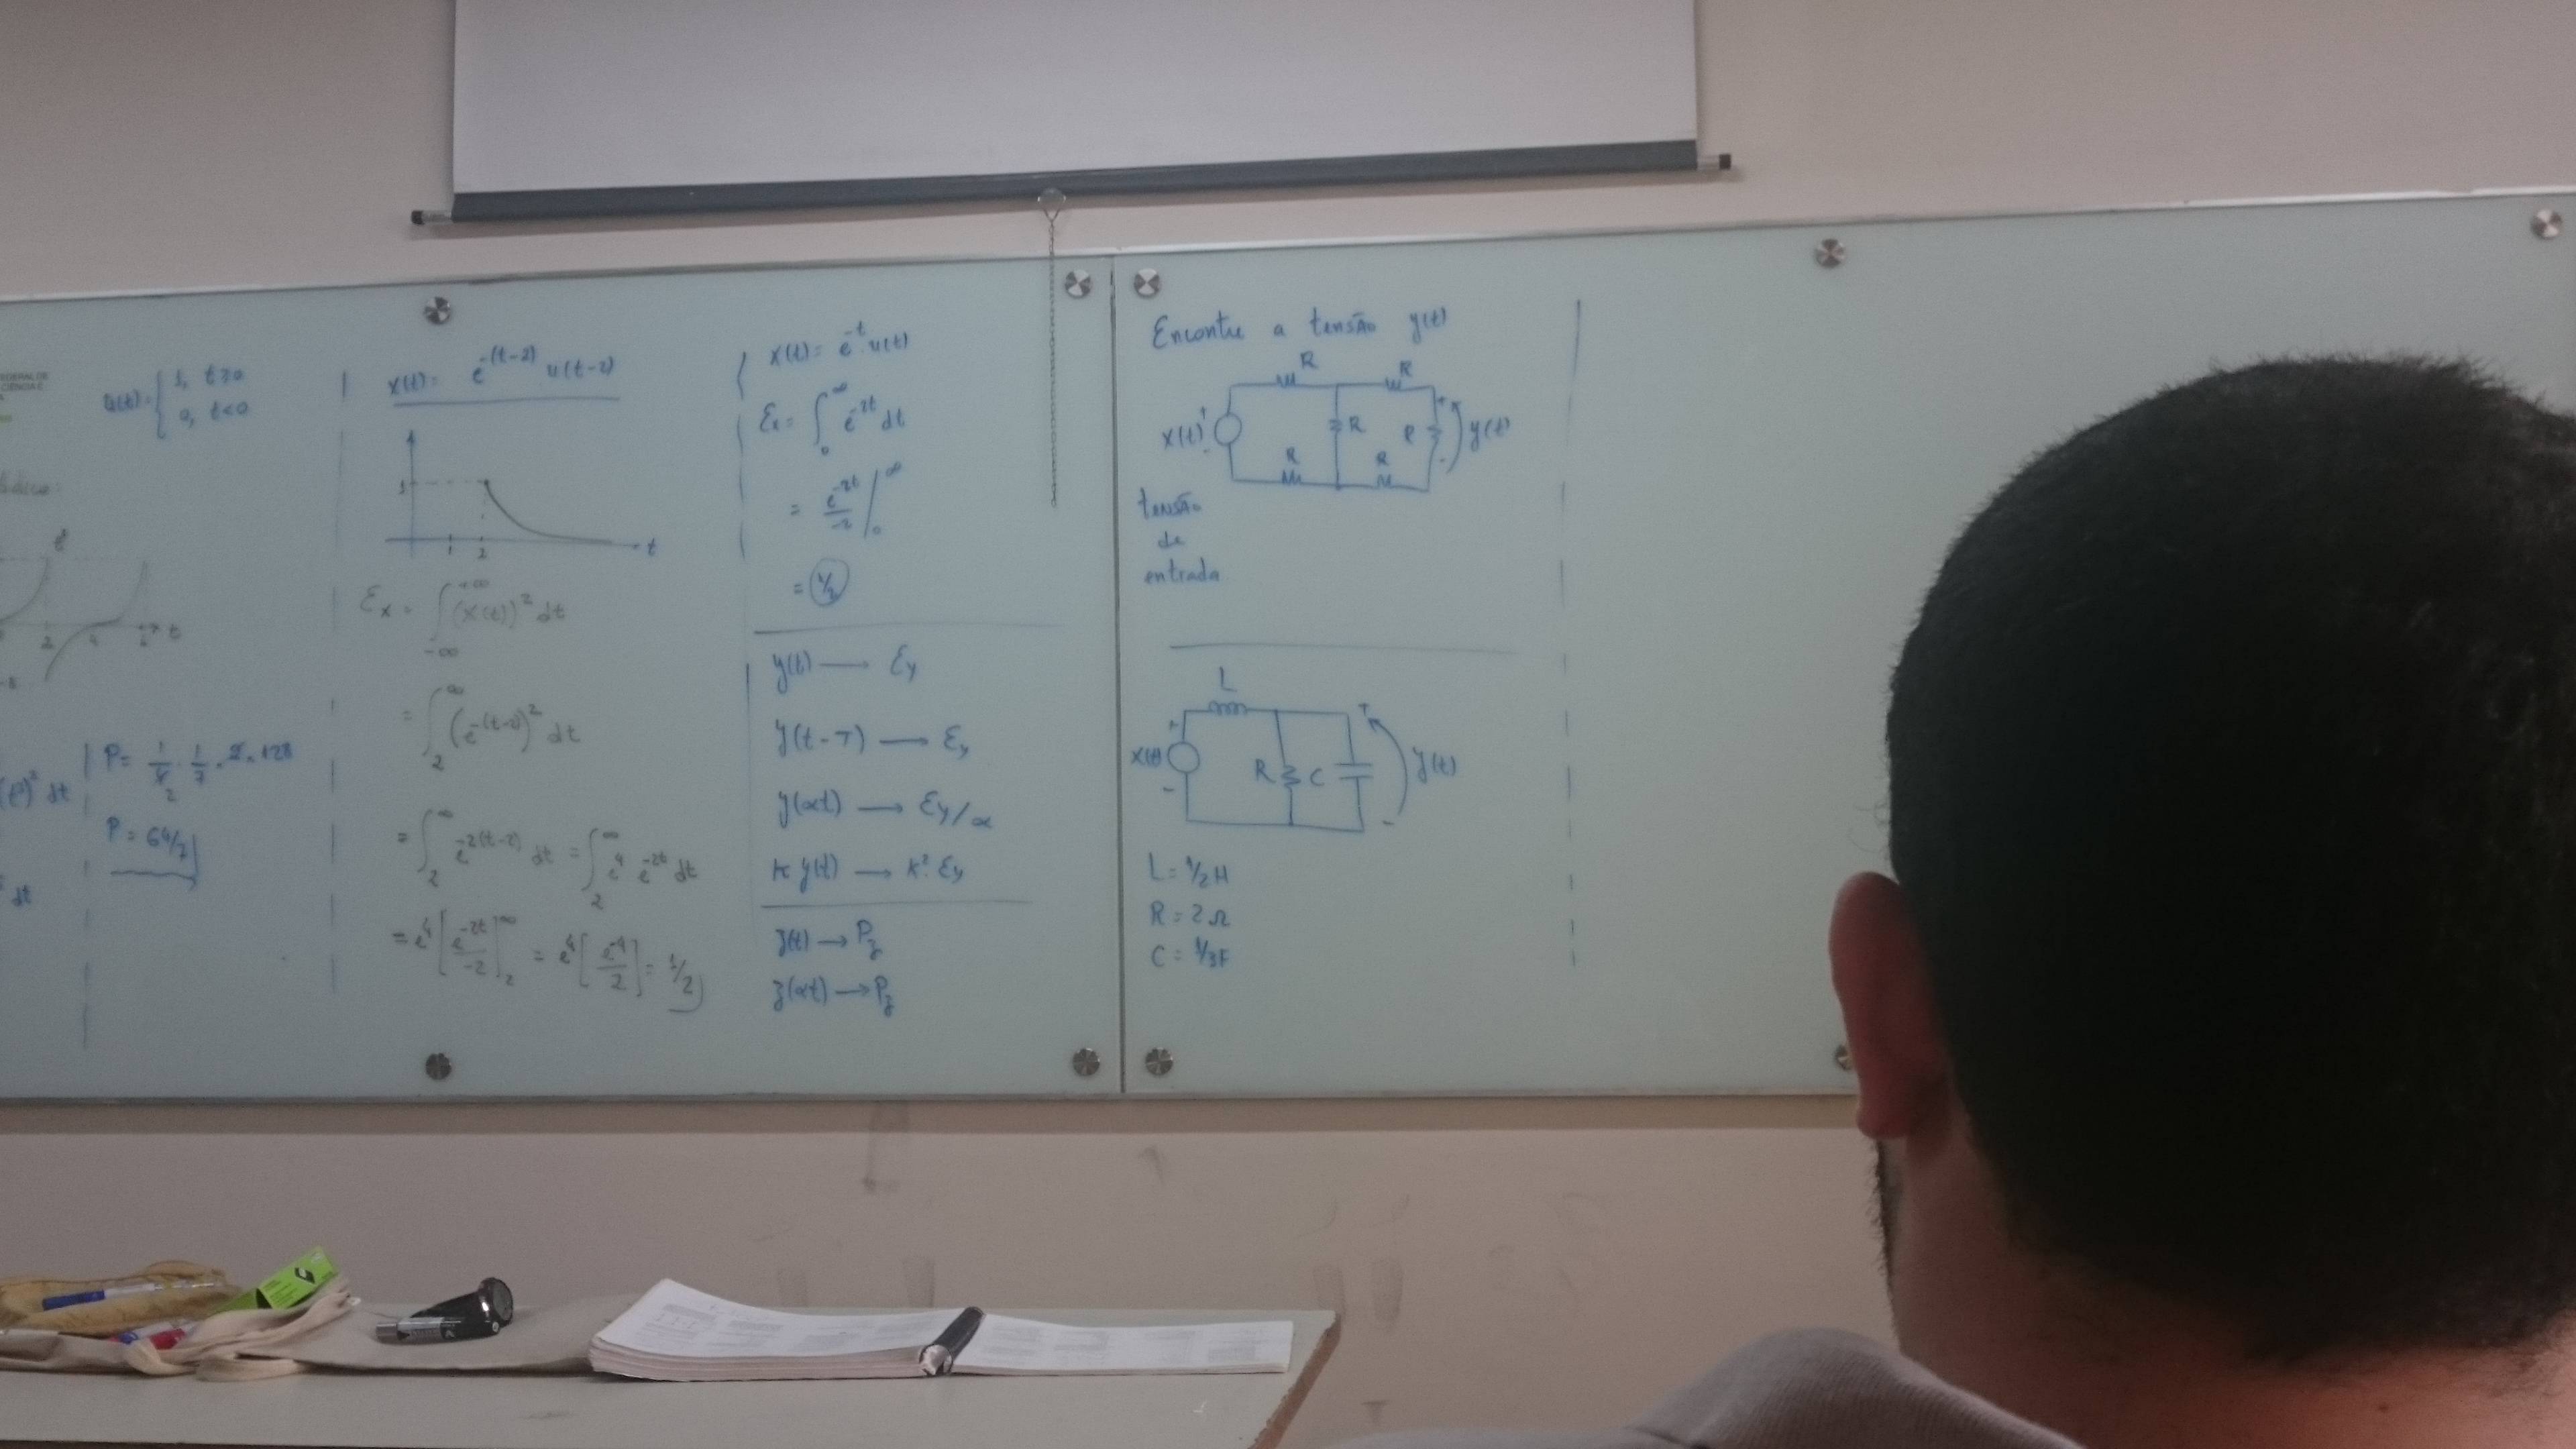 EDERAL DE
CIÊNCIA E
u(t)= { 1, t≥0
0, t<0
t³
2 4 6 t
-8
(t³)² dt
dt
P= 1/6 . 1/7 . 2 . 128
2
P = 64/7
x(t)= e^-(t-2) u(t-2)
1
1 2 t
Ex = ∫_-∞^+∞ (x(t))² dt
= ∫_2^∞ (e^-(t-2))² dt
= ∫_2^∞ e^-2(t-2) dt = ∫_2^∞ e^4 e^-2t dt
= e^4 [e^-2t/-2]_2^∞ = e^4 [e^-4/2] = 1/2
x(t)= e^-t . u(t)
Ex= ∫_0^∞ e^-2t dt
= e^-2t/-2 |_0^∞
= 1/2
y(t) → Ey
y(t-T) → Ey
y(αt) → Ey/α
K y(t) → K². Ey
z(t) → Pz
z(αt) → Pz
Encontre a tensão y(t)
R R
x(t) + - R R + - y(t)
R R
tensão
de
entrada
L
x(t) + - R C + - y(t)
L = 1/2 H
R = 2 Ω
C = 1/3 F